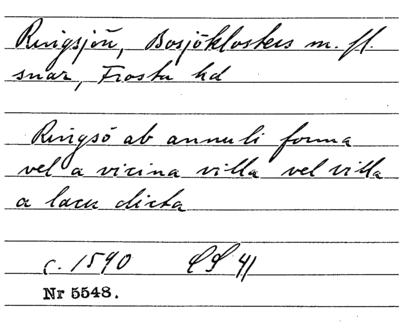 Ringsjön, Bosjöklosters m. fl.
snar, Frosta hd
Ringsö ab annuli forma
vel a vicina villa vel villa
a lacu dicta
c. 1590 LS 41
Nr 5548.